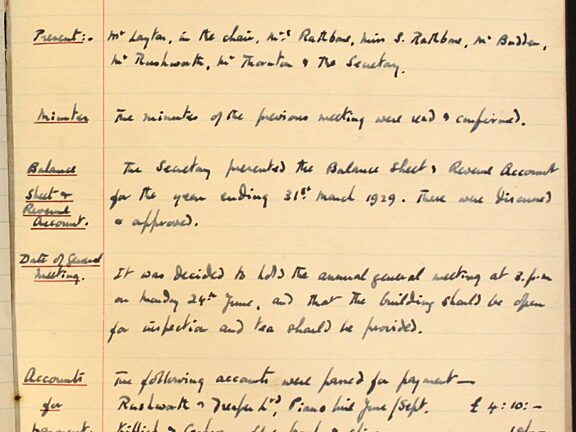 Present:- Mr Layton, in the chair, Mrs Rathbone, Miss S. Rathbone, Mr Budden,
Mr Rushworth, Mr Thornton & The Secretary.
Minutes The minutes of the previous meeting were read & confirmed.
Balance The Secretary presented the Balance Sheet & Revenue Account
Sheet & for the year ending 31st March 1929. These were discussed
Revenue & approved.
Account.
Date of General
Meeting. It was decided to hold the annual general meeting at 3.p.m
on Monday 24th June, and that the building should be open
for inspection and tea should be provided.
Accounts The following accounts were passed for payment—
for Rushworth & Dreaper Ltd, Piano hire June/Sept. £4:10:-
payment.